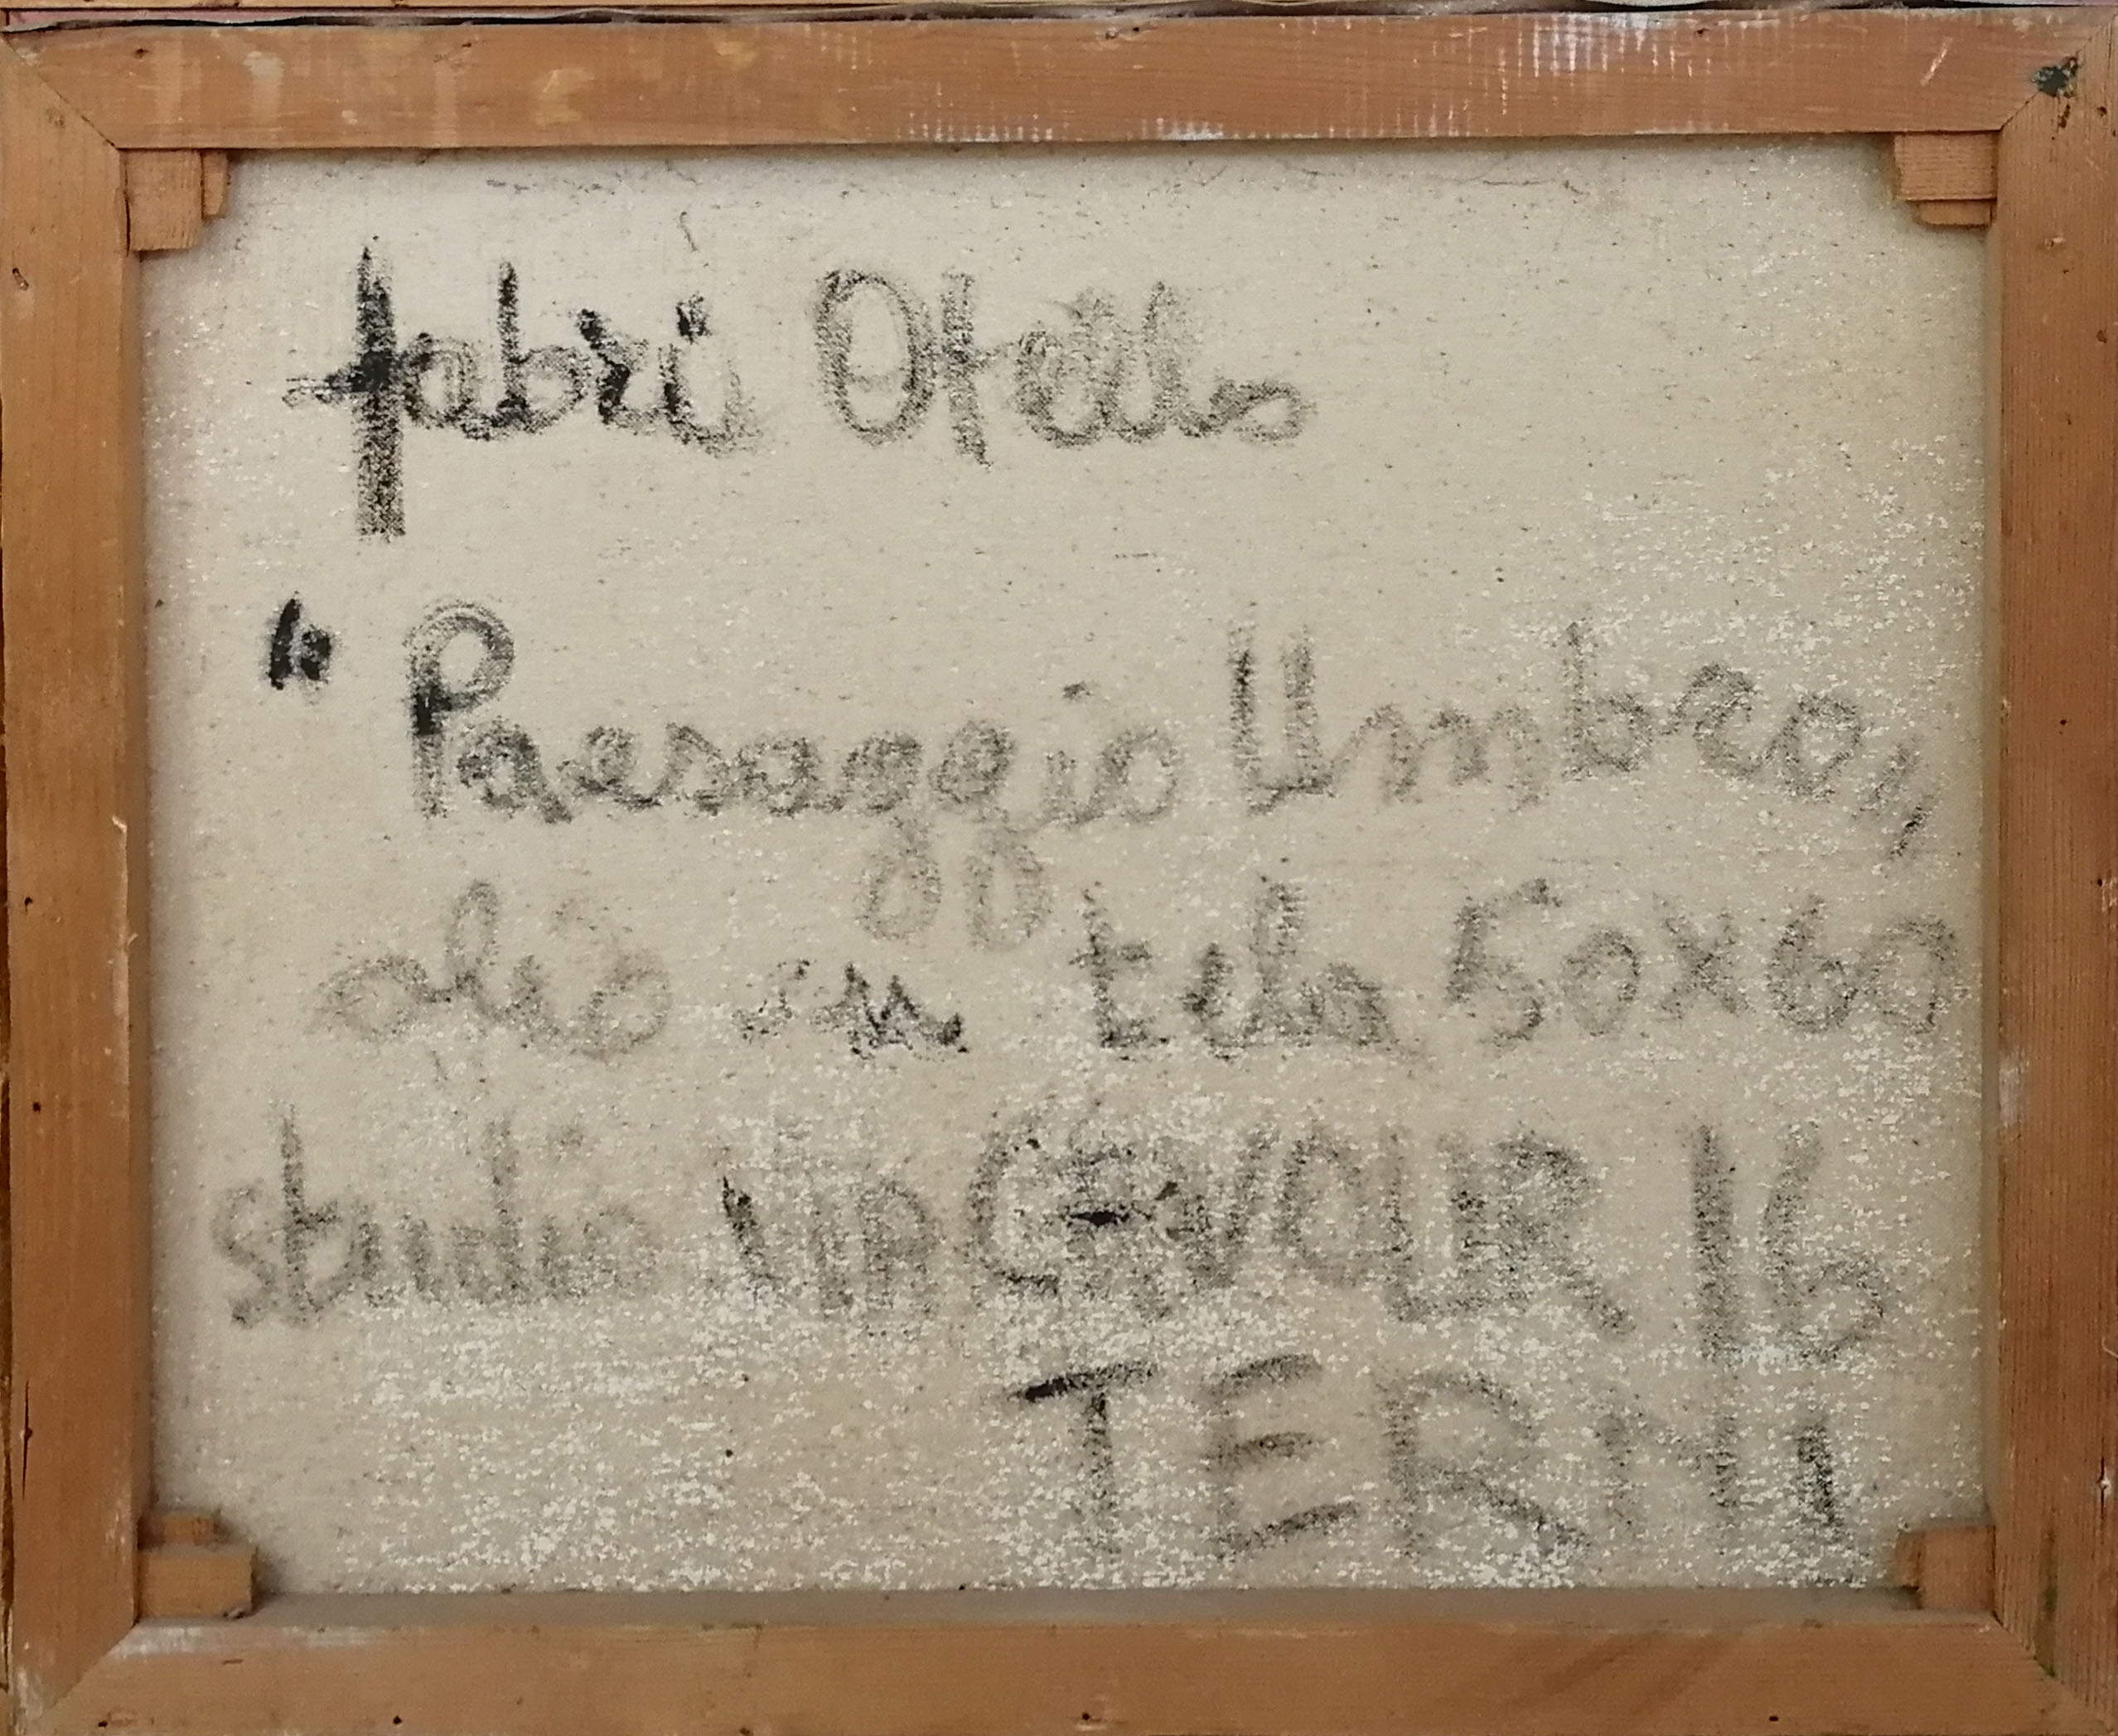 fabri Otello
"Paesaggio Umbro"
olio su tela 50x60
studio VIA CAVOUR 16
TERNI